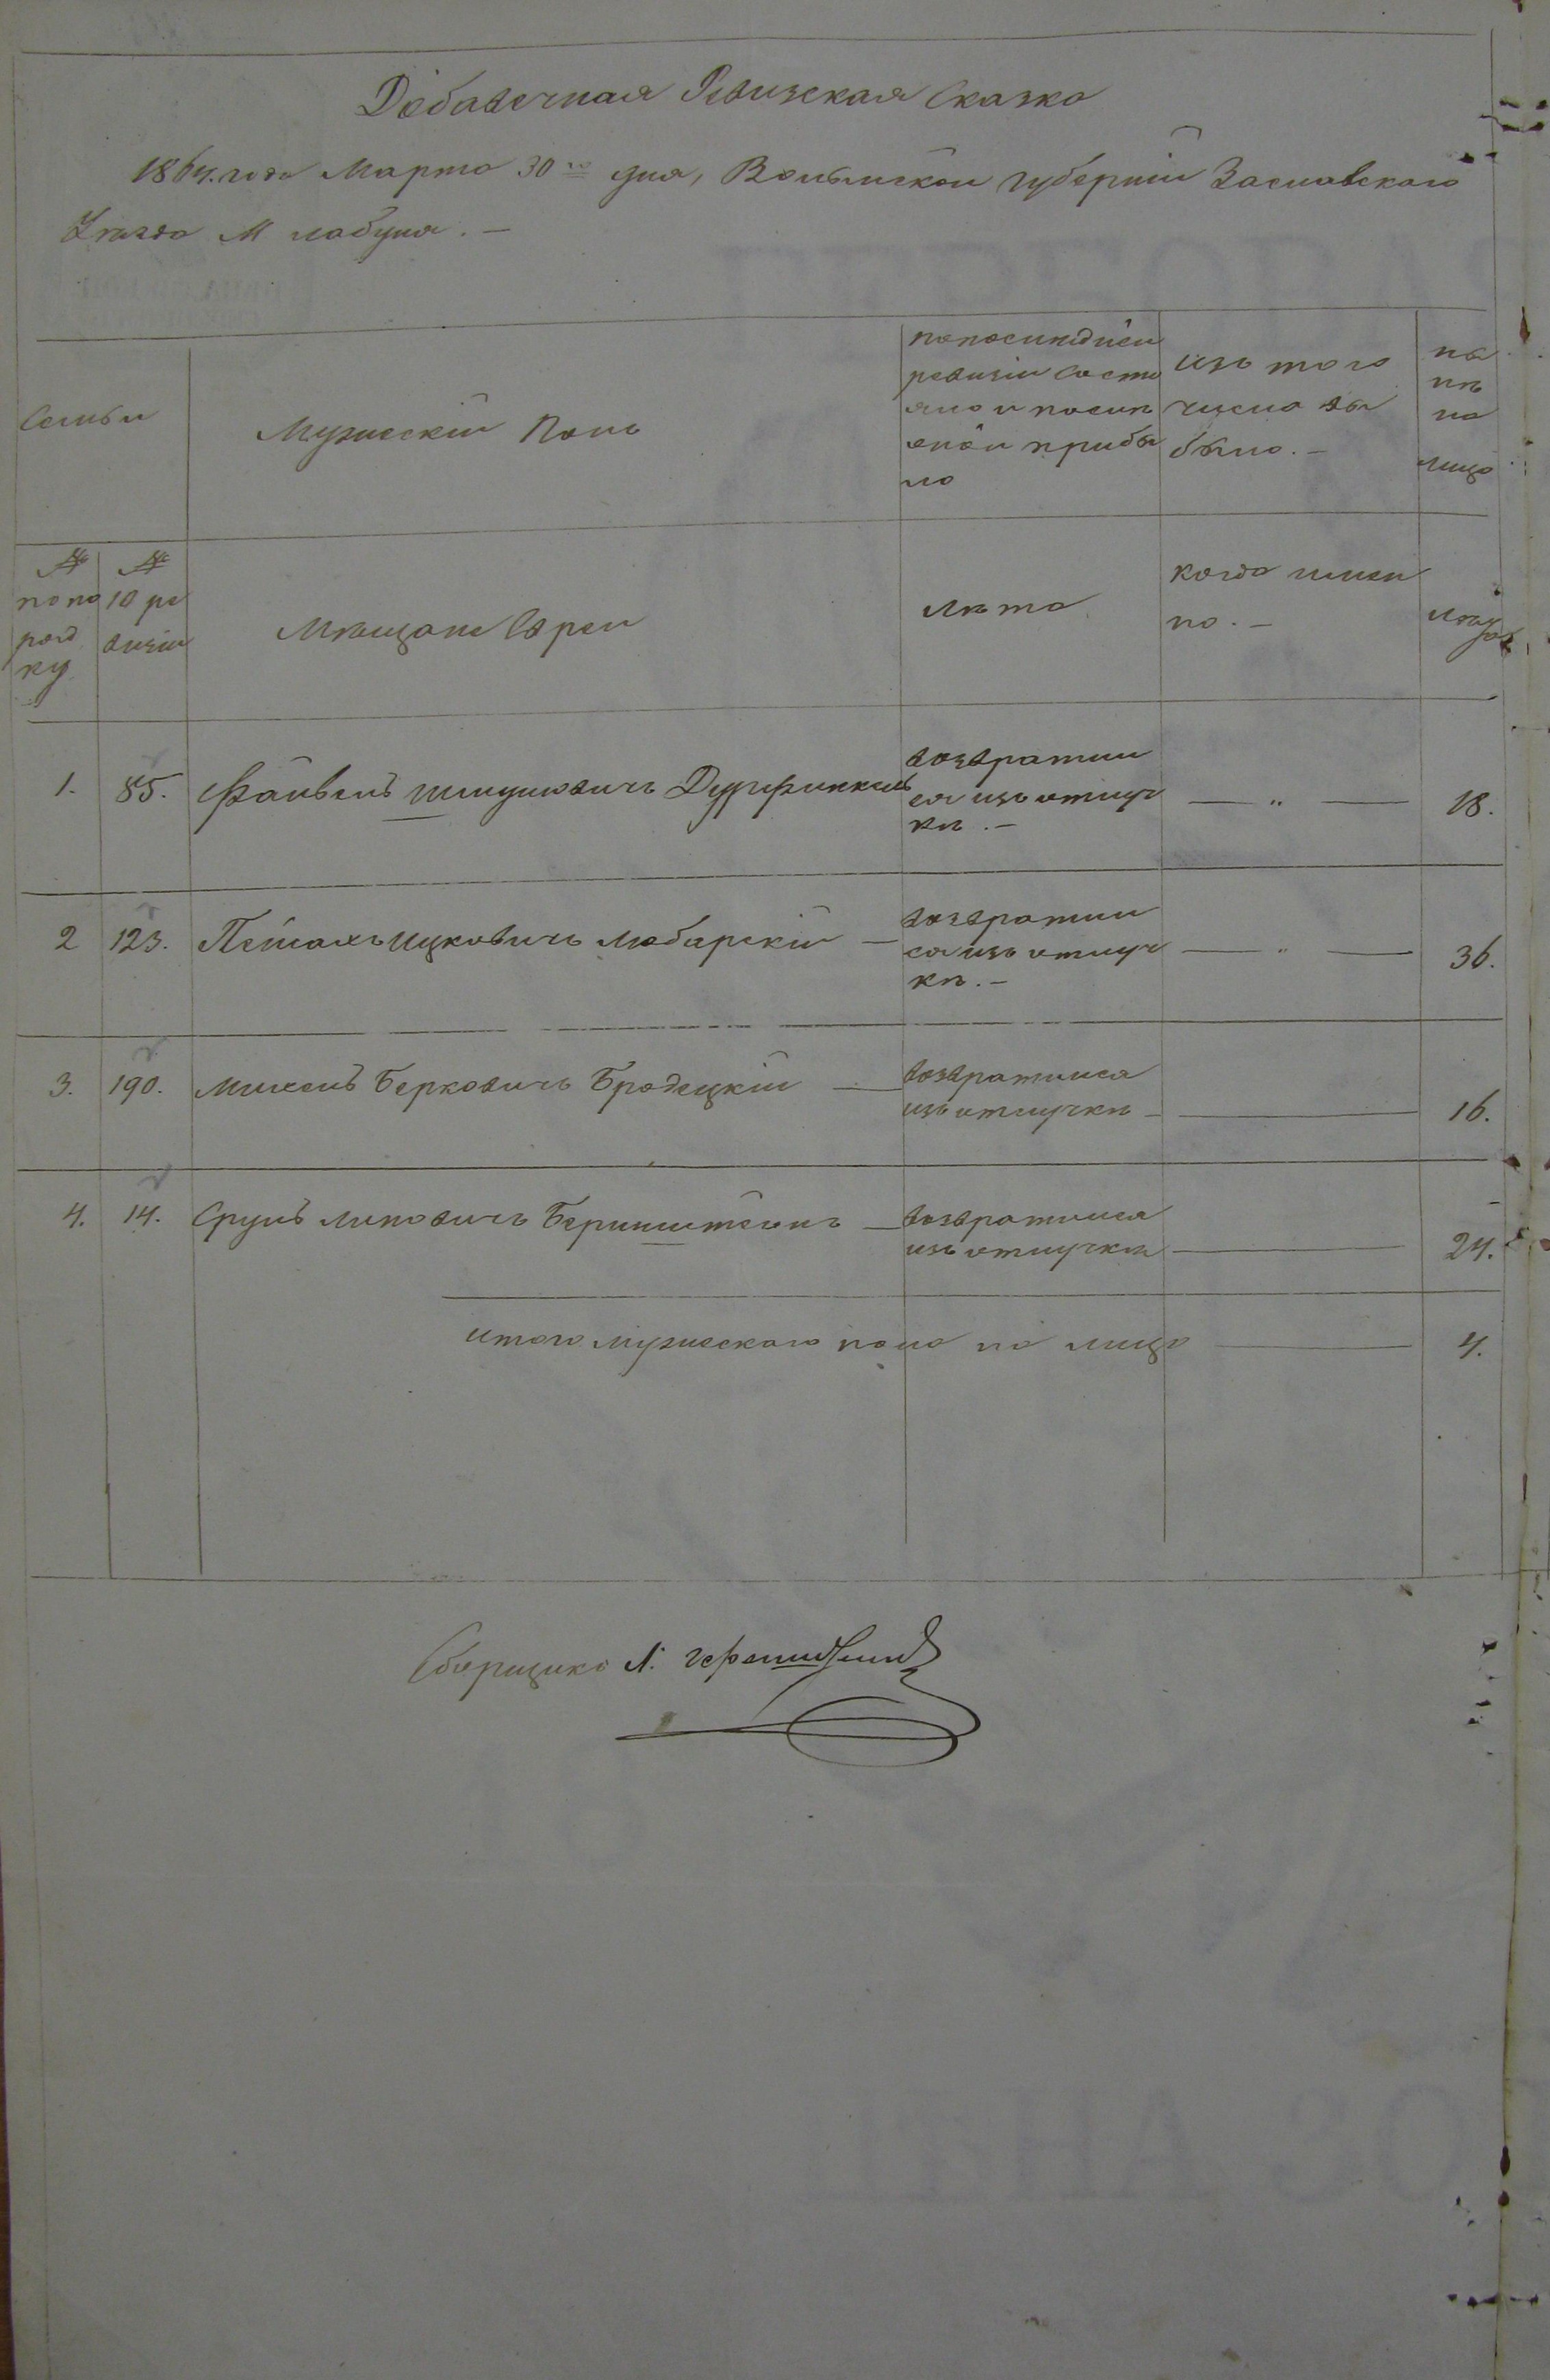 Добавечная Ревизская Сказка
1864. года Марта 30го дня, Волынской губерніи Заславского
Уезда М Лабуня. —
Семьи
Мужескій Полъ
попоследней
ревизіи состо
яло и после
оной прибы
ло
Изъ того
числа вы
было. —
ны
не
на
лицо
№
по по
ряд
ку
№
10 ре
визіи
Мещане Евреи
Лета
когда имен
но. —
Лета
1. 85. Файвель Шмулювичъ Дурфинкель
возвратил
ся изъ отлуч
ки. —
— " — 18.
2 123. Пейсахъ Ицковичъ Любарскій —
возвратил
ся изъ отлуч
ки. —
— " — 36.
3. 190. Михель Берковичъ Бродецкій —
возвратился
изъ отлучки — — 16.
4. 14. Сруль Липовичъ Беринштейнъ —
возвратился
изъ отлучки — 24.
итого мужескаго пола на лицо — 4.
Сборщикъ Л.